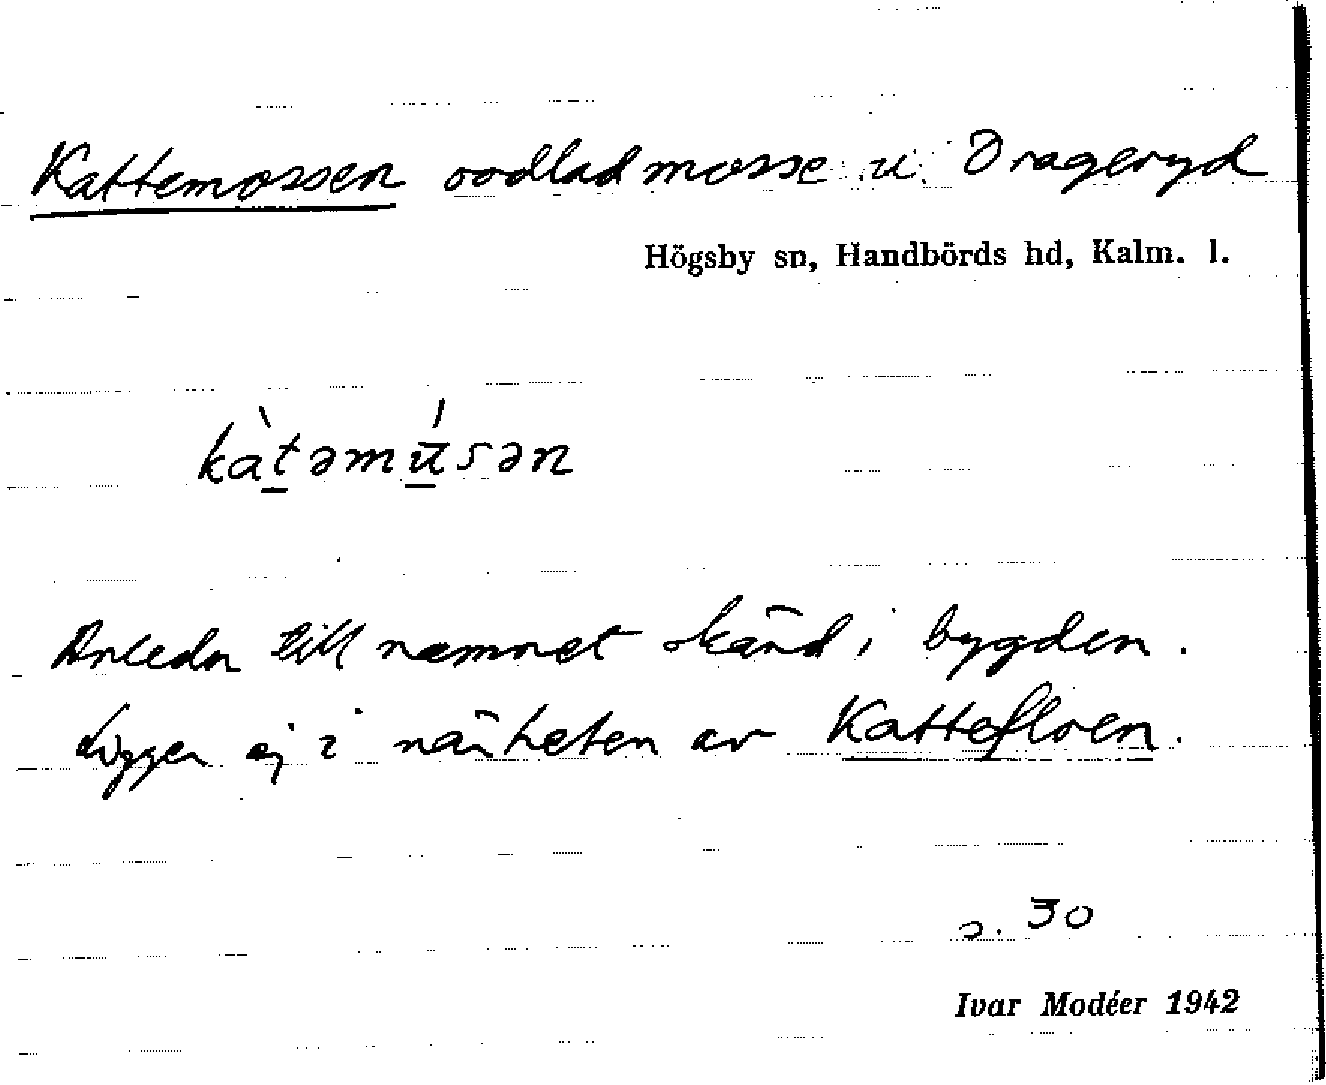 Kattemossen oodlad mosse u. Drageryd
Högsby sn, Handbörds hd, Kalm. l.
kàtəmúsən
Anledn till namnet okänd i bygden.
Ligger ej i närheten av Kattefloen.
s. 30
Ivar Modéer 1942